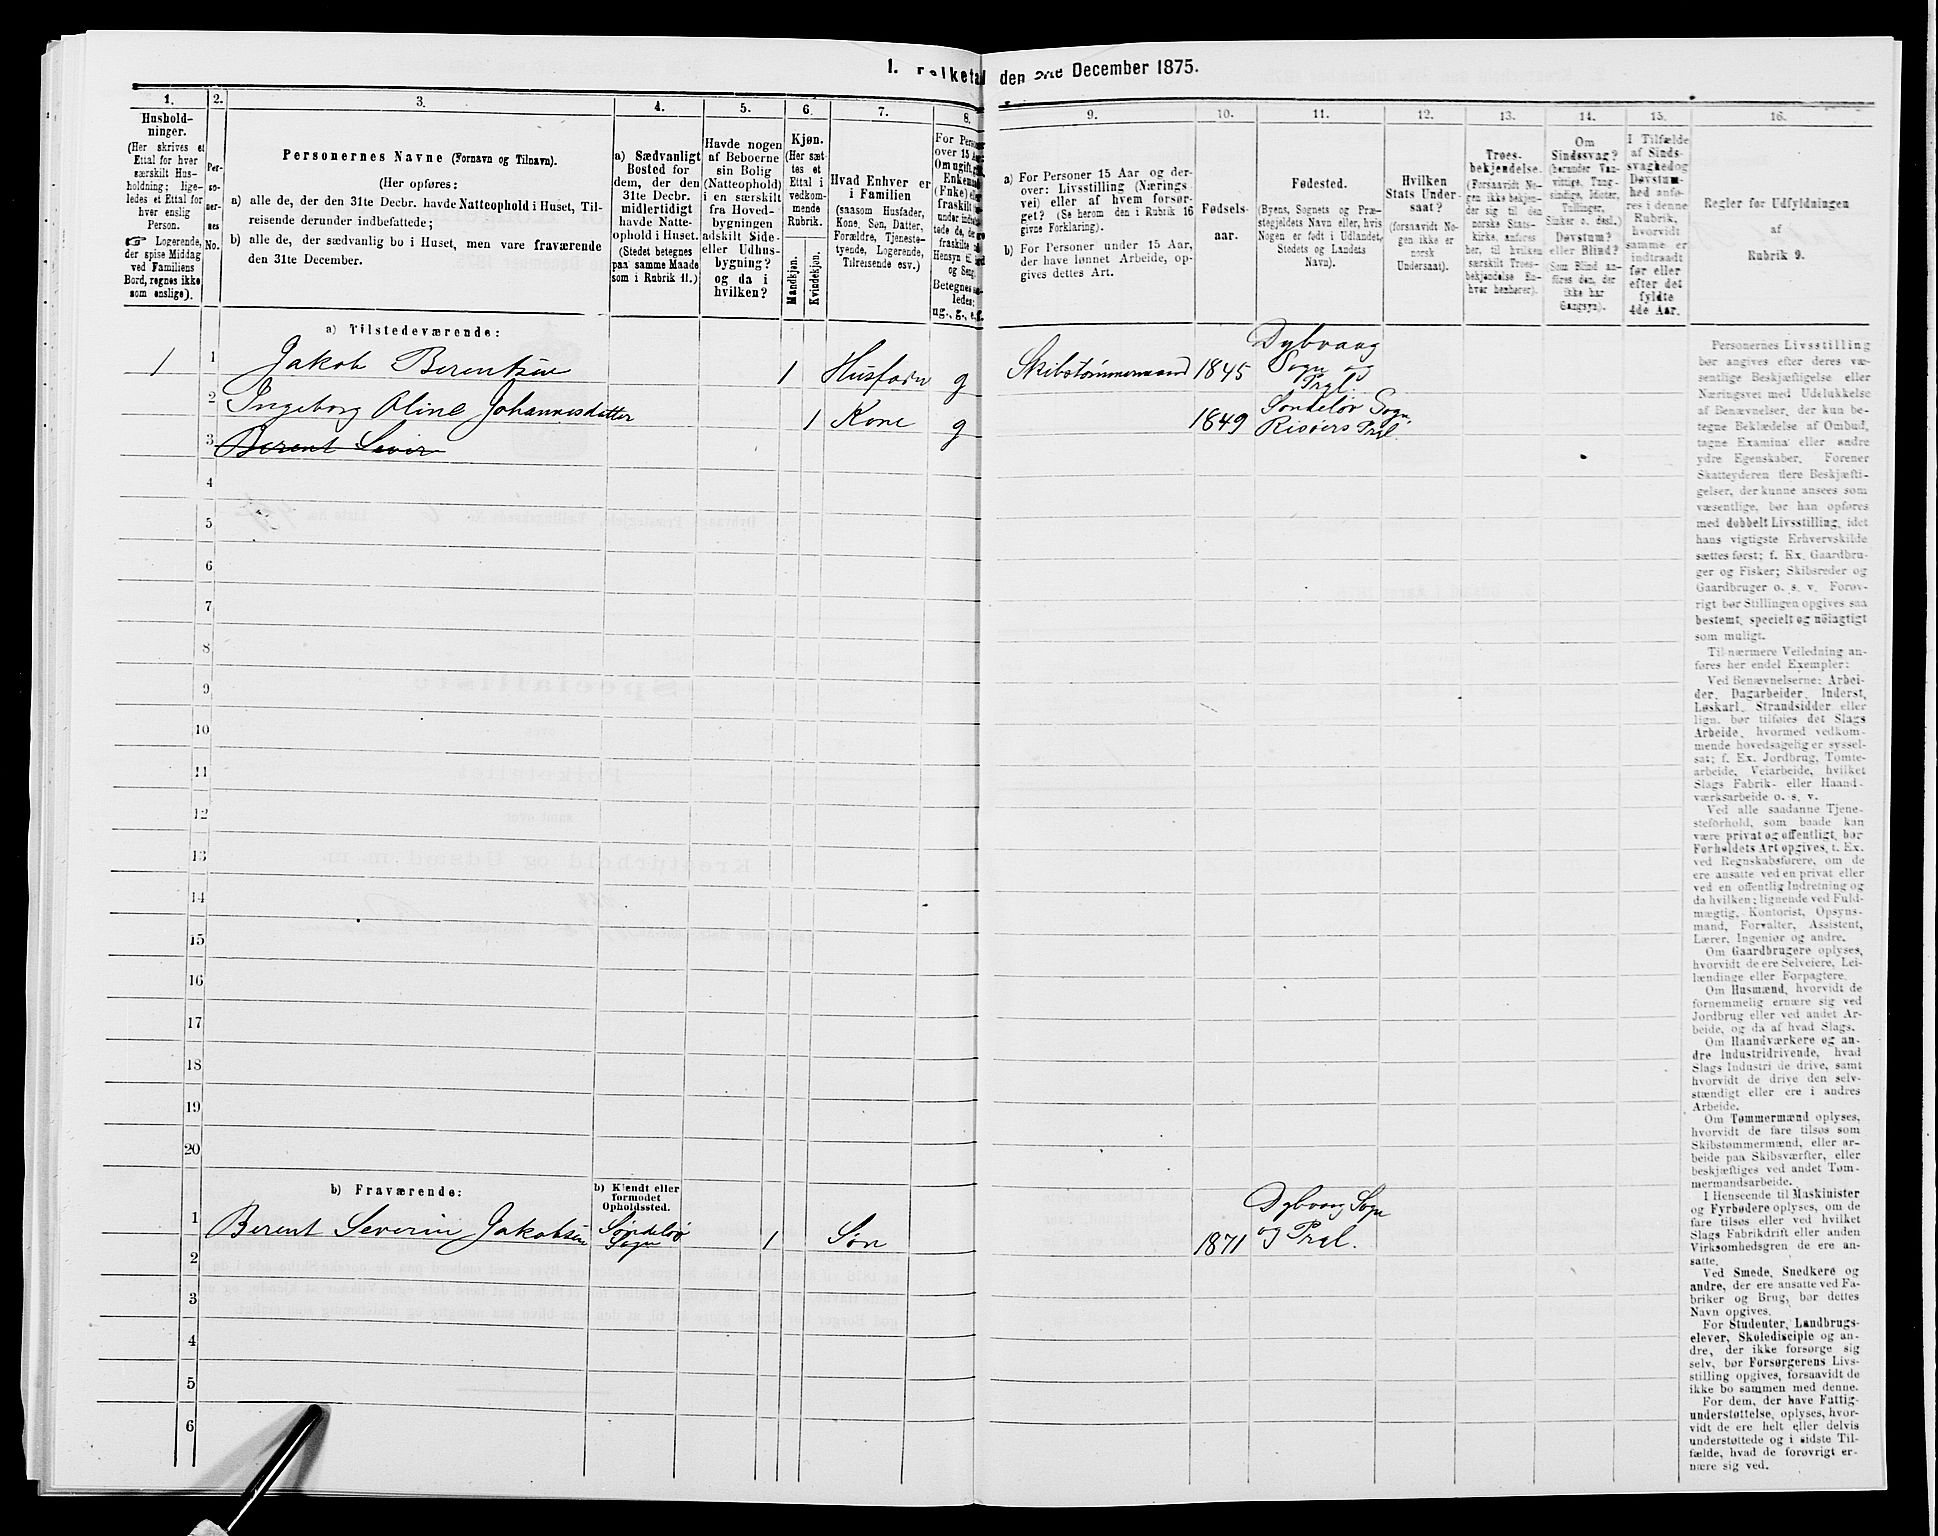 1. Folketal den 31te December 1875.
1.
Hushold-
ninger.
(Her skrives et
Ettal for hver
særskilt Hus-
holdning; lige-
ledes et Ettal for
hver enslig
Person.
☞ Logerende,
der spise Middag
ved Familiens
Bord, regnes ikke
som enslige).
2.
Per-
so-
ner-
nes
No.
3.
Personernes Navne (Fornavn og Tilnavn).
(Her opføres:
a) alle de, der den 31te Decbr. havde Natteophold i Huset, Til-
reisende derunder indbefattede;
b) alle de, der sædvanlig bo i Huset, men vare fraværende
den 31te December.
4.
a) Sædvanligt
Bosted for
dem, der den
31te Decbr.
midlertidigt
havde Natte-
ophold i Huset.
(Stedet betegnes
paa samme Maade
som i Rubrik 11.)
5.
Havde nogen
af Beboerne
sin Bolig
(Natteophold)
i en særskilt
fra Hoved-
bygningen
adskilt Side-
eller Udhus-
bygning?
og da i
hvilken?
6.
Kjøn.
(Her sæt-
tes et
Ettal i
vedkom-
mende
Rubrik.
Mandkjøn.
Kvindekjøn.
7.
Hvad Enhver er
i Familien
(saasom Husfader,
Kone, Søn, Datter,
Forældre, Tjeneste-
tyende, Logerende,
Tilreisende osv.)
8.
For Perso
over 15 Aa
Om ugift,
Enkeman
(Enke) el
fraskilt
under indbe
tede de, der
fraskilte
Hensyn til
og Seng.
Betegnes saa-
ledes:
ug., g., e., f.
9.
a) For Personer 15 Aar og der-
over: Livsstilling (Nærings-
vei) eller af hvem forsør-
get? (Se herom den i Rubrik 16
givne Forklaring).
b) For Personer under 15 Aar,
der have lønnet Arbeide, op-
gives dettes Art.
10.
Fødsels-
aar.
11.
Fødested.
(Byens, Sognets og Præ-
stegjeldets Navn eller, hvis
Nogen er født i Udlandet,
Stedets og Landets
Navn).
12.
Hvilken
Stats Under-
saat?
(forsaavidt No-
gen ikke er
norsk
Undersaat).
13.
Troes-
bekjendelse.
(Forsaavidt No-
gen ikke bekjen-
der sig til den
norske Stats-
kirke, anføres
her, til hvilken
særskilt Troes-
bekjendelse En-
hver henhører).
14.
Om
Sindssvag?
(herunder Van-
vittige, Tung-
sindige, Idioter,
Tullinger,
Sinker o. desl.)
Døvstum?
eller Blind?
(Som Blind an-
føres den, der
ikke har
Gangsyn).
15.
I Tilfælde
af Sinds-
svaghed og
Døvstum-
hed anfø-
res i denne
Rubrik,
hvorvidt
samme er
indtraadt
før eller
efter det
fyldte
4de Aar.
16.
Regler for Udfyldningen
af
Rubrik 9.
a) Tilstedeværende:
1 1 Jakob Berentsen 1 Husfader g Skibstømmermand 1845 Dybvaag
Sogn og
Prgl.
2 Ingeborg Oline Johannesdatter 1 Kone g 1849 Søndeløv Sogn
Risøers Prgl.
3 Berent Sever
4
5
6
7
8
9
10
11
12
13
14
15
16
17
18
19
20
b) Fraværende:
b) Kjendt eller
formodet
Opholdssted.
1 Berent Severin Jakobsen Søndeløv
Sogn 1 Søn 1871 Dybvaag Sogn
og Prgl.
2
3
4
5
6
Personernes Livsstilling
bør angives efter deres væ-
sentlige Beskjæftigelse eller
Næringsvei med Udelukkelse
af Benævnelser, der kun be-
tegne Beklædelse af Ombud,
tagne Examina eller andre
ydre Egenskaber. Forener
Skatteyderen flere Beskjæfti-
gelser, der kunne ansees som
væsentlige, bør han opføres
med dobbelt Livsstilling, idet
hans vigtigste Erhvervskilde
sættes først; f. Ex. Gaardbru-
ger og Fisker; Skibsreder og
Gaardbruger o. s. v. Forøv-
rigt bør Stillingen opgives saa
bestemt, specielt og nöiagtigt
som muligt.
Til nærmere Veiledning an-
føres her endel Exempler:
Ved Benævnelserne: Arbei-
der, Dagarbeider, Inderst,
Løskarl, Strandsidder eller
lign. bør tilføies det Slags
Arbeide, hvormed vedkom-
mende hovedsagelig er syssel-
sat; f. Ex. Jordbrug, Tomte-
arbeide, Veiarbeide, hvilket
Slags Fabrik- eller Haand-
værksarbeide o. s. v.
Ved alle saadanne Tjene-
steforhold, som baade kan
være privat og offentligt, bør
Forholdets Art opgives, f. Ex.
ved Regnskabsførere, om de
ere ansatte ved en privat eller
ved en offentlig Indretning og
da hvilken; lignende ved Fuld-
mægtig, Kontorist, Opsyns-
mand, Forvalter, Assistent,
Lærer, Ingeniør og andre.
Om Gaardbrugere oplyses,
hvorvidt de ere Selveiere, Lei-
lændinge eller Forpagtere.
Om Husmænd, hvorvidt de
fornemmelig ernære sig ved
Jordbrug eller ved andet Ar-
beide, og da af hvad Slags.
Om Haandværkere og an-
dre Industridrivende, hvad
Slags Industri de drive, samt
hvorvidt de drive den selv-
stændigt eller ere i andres
Arbeide.
Om Tømmermænd oplyses,
hvorvidt de fare tilsøs som
Skibstømmermænd, eller ar-
beide paa Skibsværfter, eller
beskjæftiges ved andet Tøm-
mermandsarbeide.
I Henseende til Maskinister
og Fyrbødere oplyses, om de
fare tilsøs eller ved hvilket
Slags Fabrikdrift eller anden
Virksomhedsgren de ere an-
satte.
Ved Smede, Snedkere og
andre, der ere ansatte ved Fa-
briker og Brug, bør dettes
Navn opgives.
For Studenter, Landbrugs-
elever, Skoledisciple og an-
dre, der ikke forsørge sig
selv, bør Forsørgerens Livs-
stilling opgives, forsaavidt de
ikke bo sammen med denne.
For dem, der have Fattig-
understøttelse, oplyses, hvor-
vidt de ere helt eller delvis
understøttede og i sidste Til-
fælde, hvad de forøvrigt er-
nære sig ved.